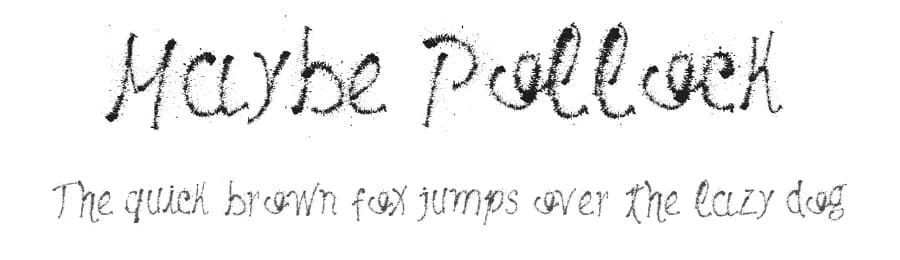 Maybe Pollock
The quick brown fox jumps over the lazy dog